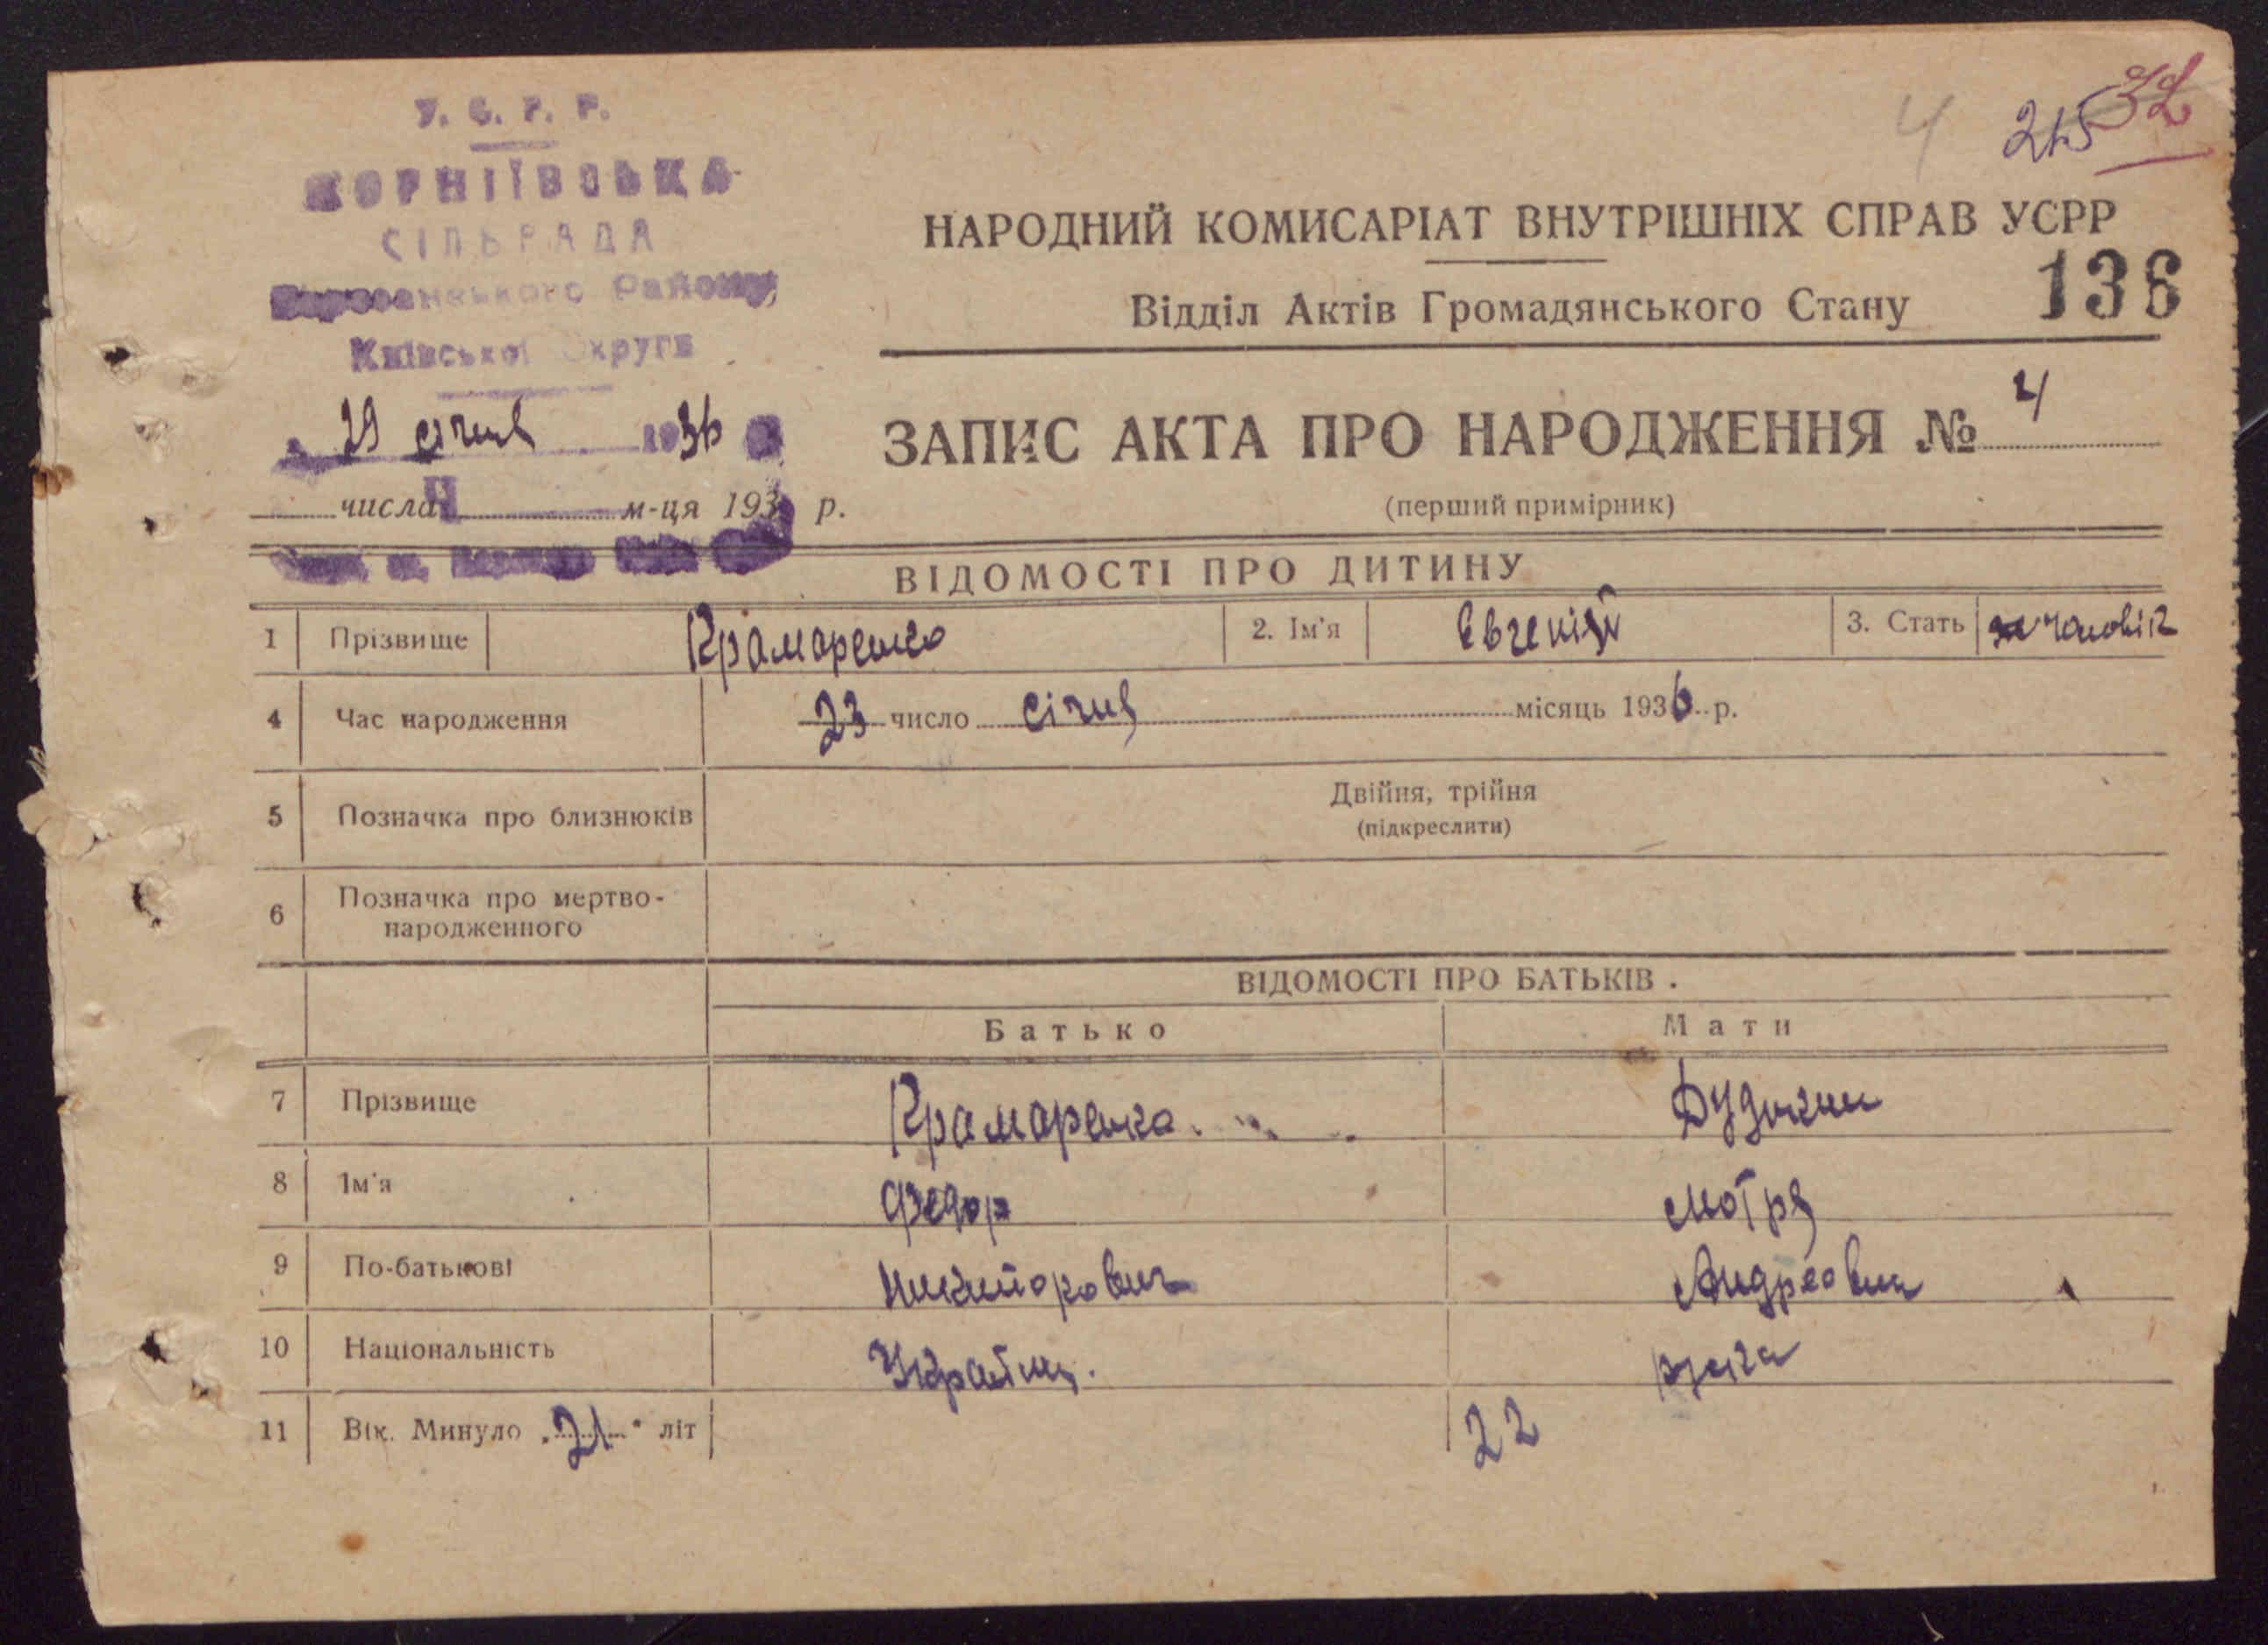 У. С. Р. Р.
КОРНІЇВСЬКА
СІЛЬРАДА
Району
Київської Округи
29 січня 1936
числа м-ця 193 р.
4 32
НАРОДНИЙ КОМИСАРІАТ ВНУТРІШНІХ СПРАВ УСРР
136
Відділ Актів Громадянського Стану
ЗАПИС АКТА ПРО НАРОДЖЕННЯ № 4
(перший примірник)
ВІДОМОСТІ ПРО ДИТИНУ
1 Прізвище Крамаренко 2. Ім'я Євгеній 3. Стать чоловік
4 Час народження 23 число січня місяць 1936 р.
5 Позначка про близнюків Двійня, трійня
(підкреслити)
6 Позначка про мертво-
народженного
ВІДОМОСТІ ПРО БАТЬКІВ .
Батько Мати
7 Прізвище Крамаренко
8 Ім'я Федор Мотря
9 По-батькові Андреовна
10 Національність
11 Вік. Минуло „21" літ 22